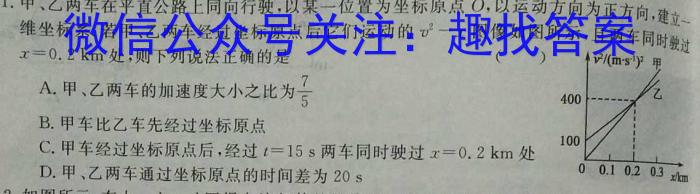 1. 甲、乙两车在平直公路上同向行驶,以某一位置为坐标原点O,以运动方向为正方向,建立一
维坐标 两车经过坐标原点后它们运动的v² 图像如图所示,且两车同时驶过
微信公众号关注:趣找答案
x=0.2 km处,则下列说法正确的是 ( )
A. 甲、乙两车的加速度大小之比为7/5
B. 甲车比乙车先经过坐标原点
C. 甲车经过坐标原点后,经过t=15 s两车同时驶过x=0.2 km处
D. 甲、乙两车通过坐标原点的时间差为20 s
v²/(m·s⁻¹)² 甲
乙
400
100
0 0.1 0.2 0.3 x/km
如图所示